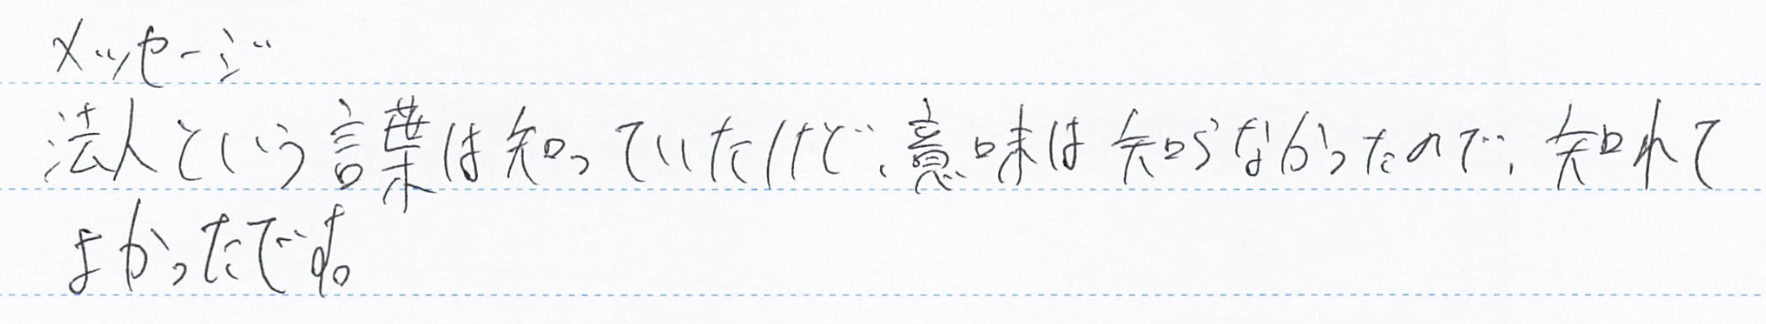 メッセージ
法人という言葉は知っていたけど、意味は知らなかったので、知れて
よかったです。